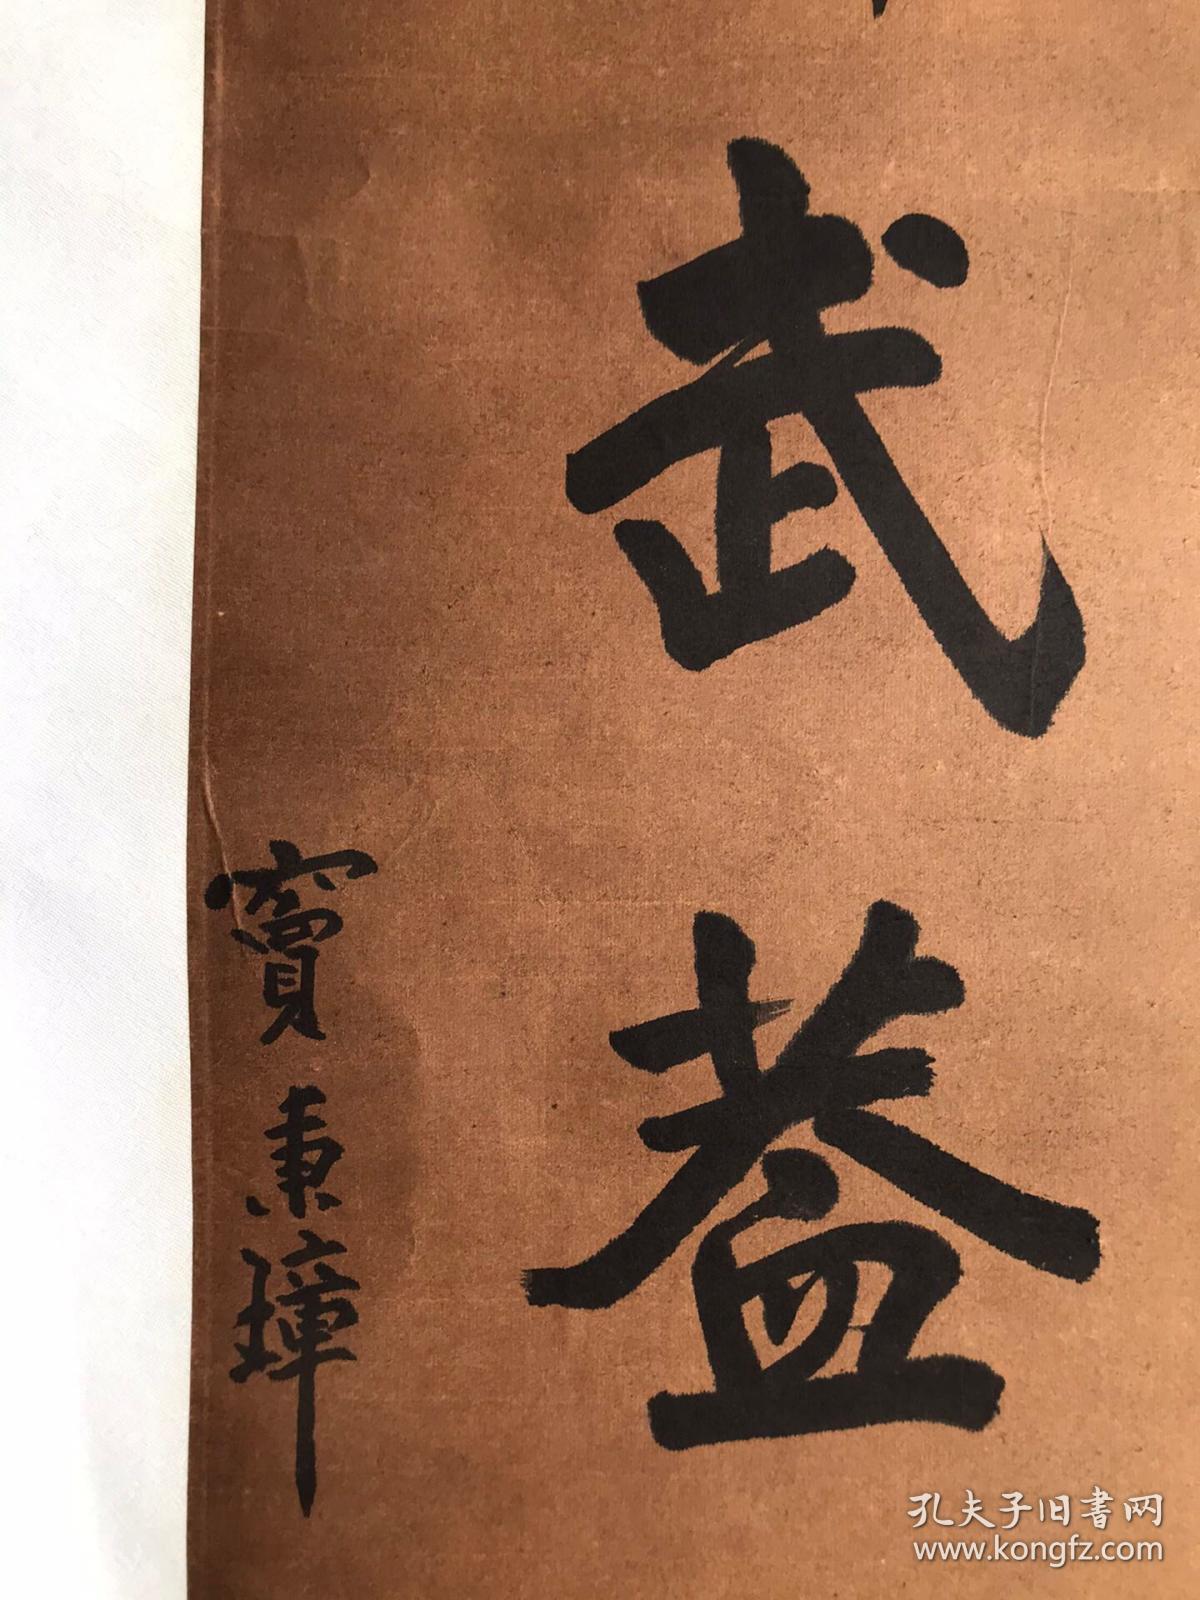 武
蓋
竇秉璋
孔夫子旧書网
www.kongfz.com